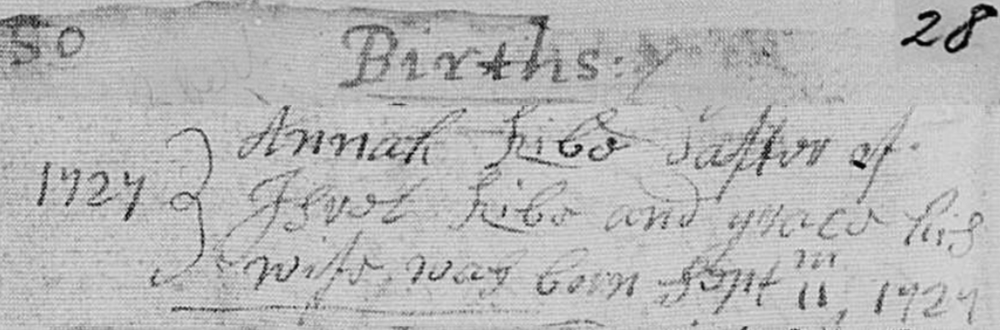 50 Births: 28
Annah Kibe dafter of
1727 Isrel Kibe and grace his
wife, was born Sept 11, 1727